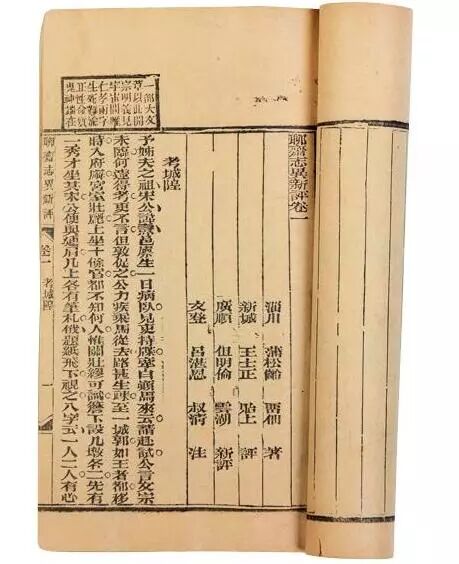 聊齋志異新評卷一
淄川 蒲松齡 留仙 著
新城 王士正 貽上 評
廣順 但明倫 雲湖 新評
文登 呂湛恩 叔清 注
一部大文
章以此開
宗明義見
宇宙間惟
仁孝兩字
生死難渝
正性命質
鬼神端在
考城隍
予姊夫之祖宋公諱燾邑廩生一日病臥見吏持牒牽白顛馬來云請赴試公言文宗
未臨何遽得考吏不言但敦促之公力疾乘馬從去路甚生疎至一城郭如王者都移
時入府廨宮室壯麗上坐十餘官都不知何人惟關壯繆可識簷下設几墩各二先有
一秀才坐其末公便與連肩几上各有筆札俄題紙飛下視之八字云一人二人有心
聊齋志異新評 卷一 考城隍 一